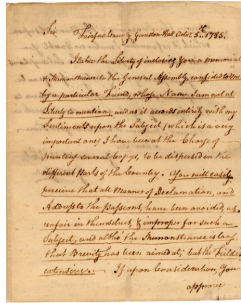 Sir Fairfax County Gunston Hall Octor. 5th. 1785.
I take the Liberty of inclosing You a memorial
& Remonstrance to the General Assembly, confided to me
by a particular Friend, whose Name I am not at
Liberty to mention; and as it accords entirely with my
Sentiments upon the Subject (which is a very
important one) I have been at the Charge of
printing several Copys, to be dispersed in the
different Parts of the Country. You will easily
perceive that all Manner of Declamation, and
Address to the Passions, have been avoided, as
unfair in themselves, & improper for such a
Subject, and altho' the Remonstrance is long,
that Brevity has been aimed at; but the Field is
extensive. If upon Consideration, You
approve